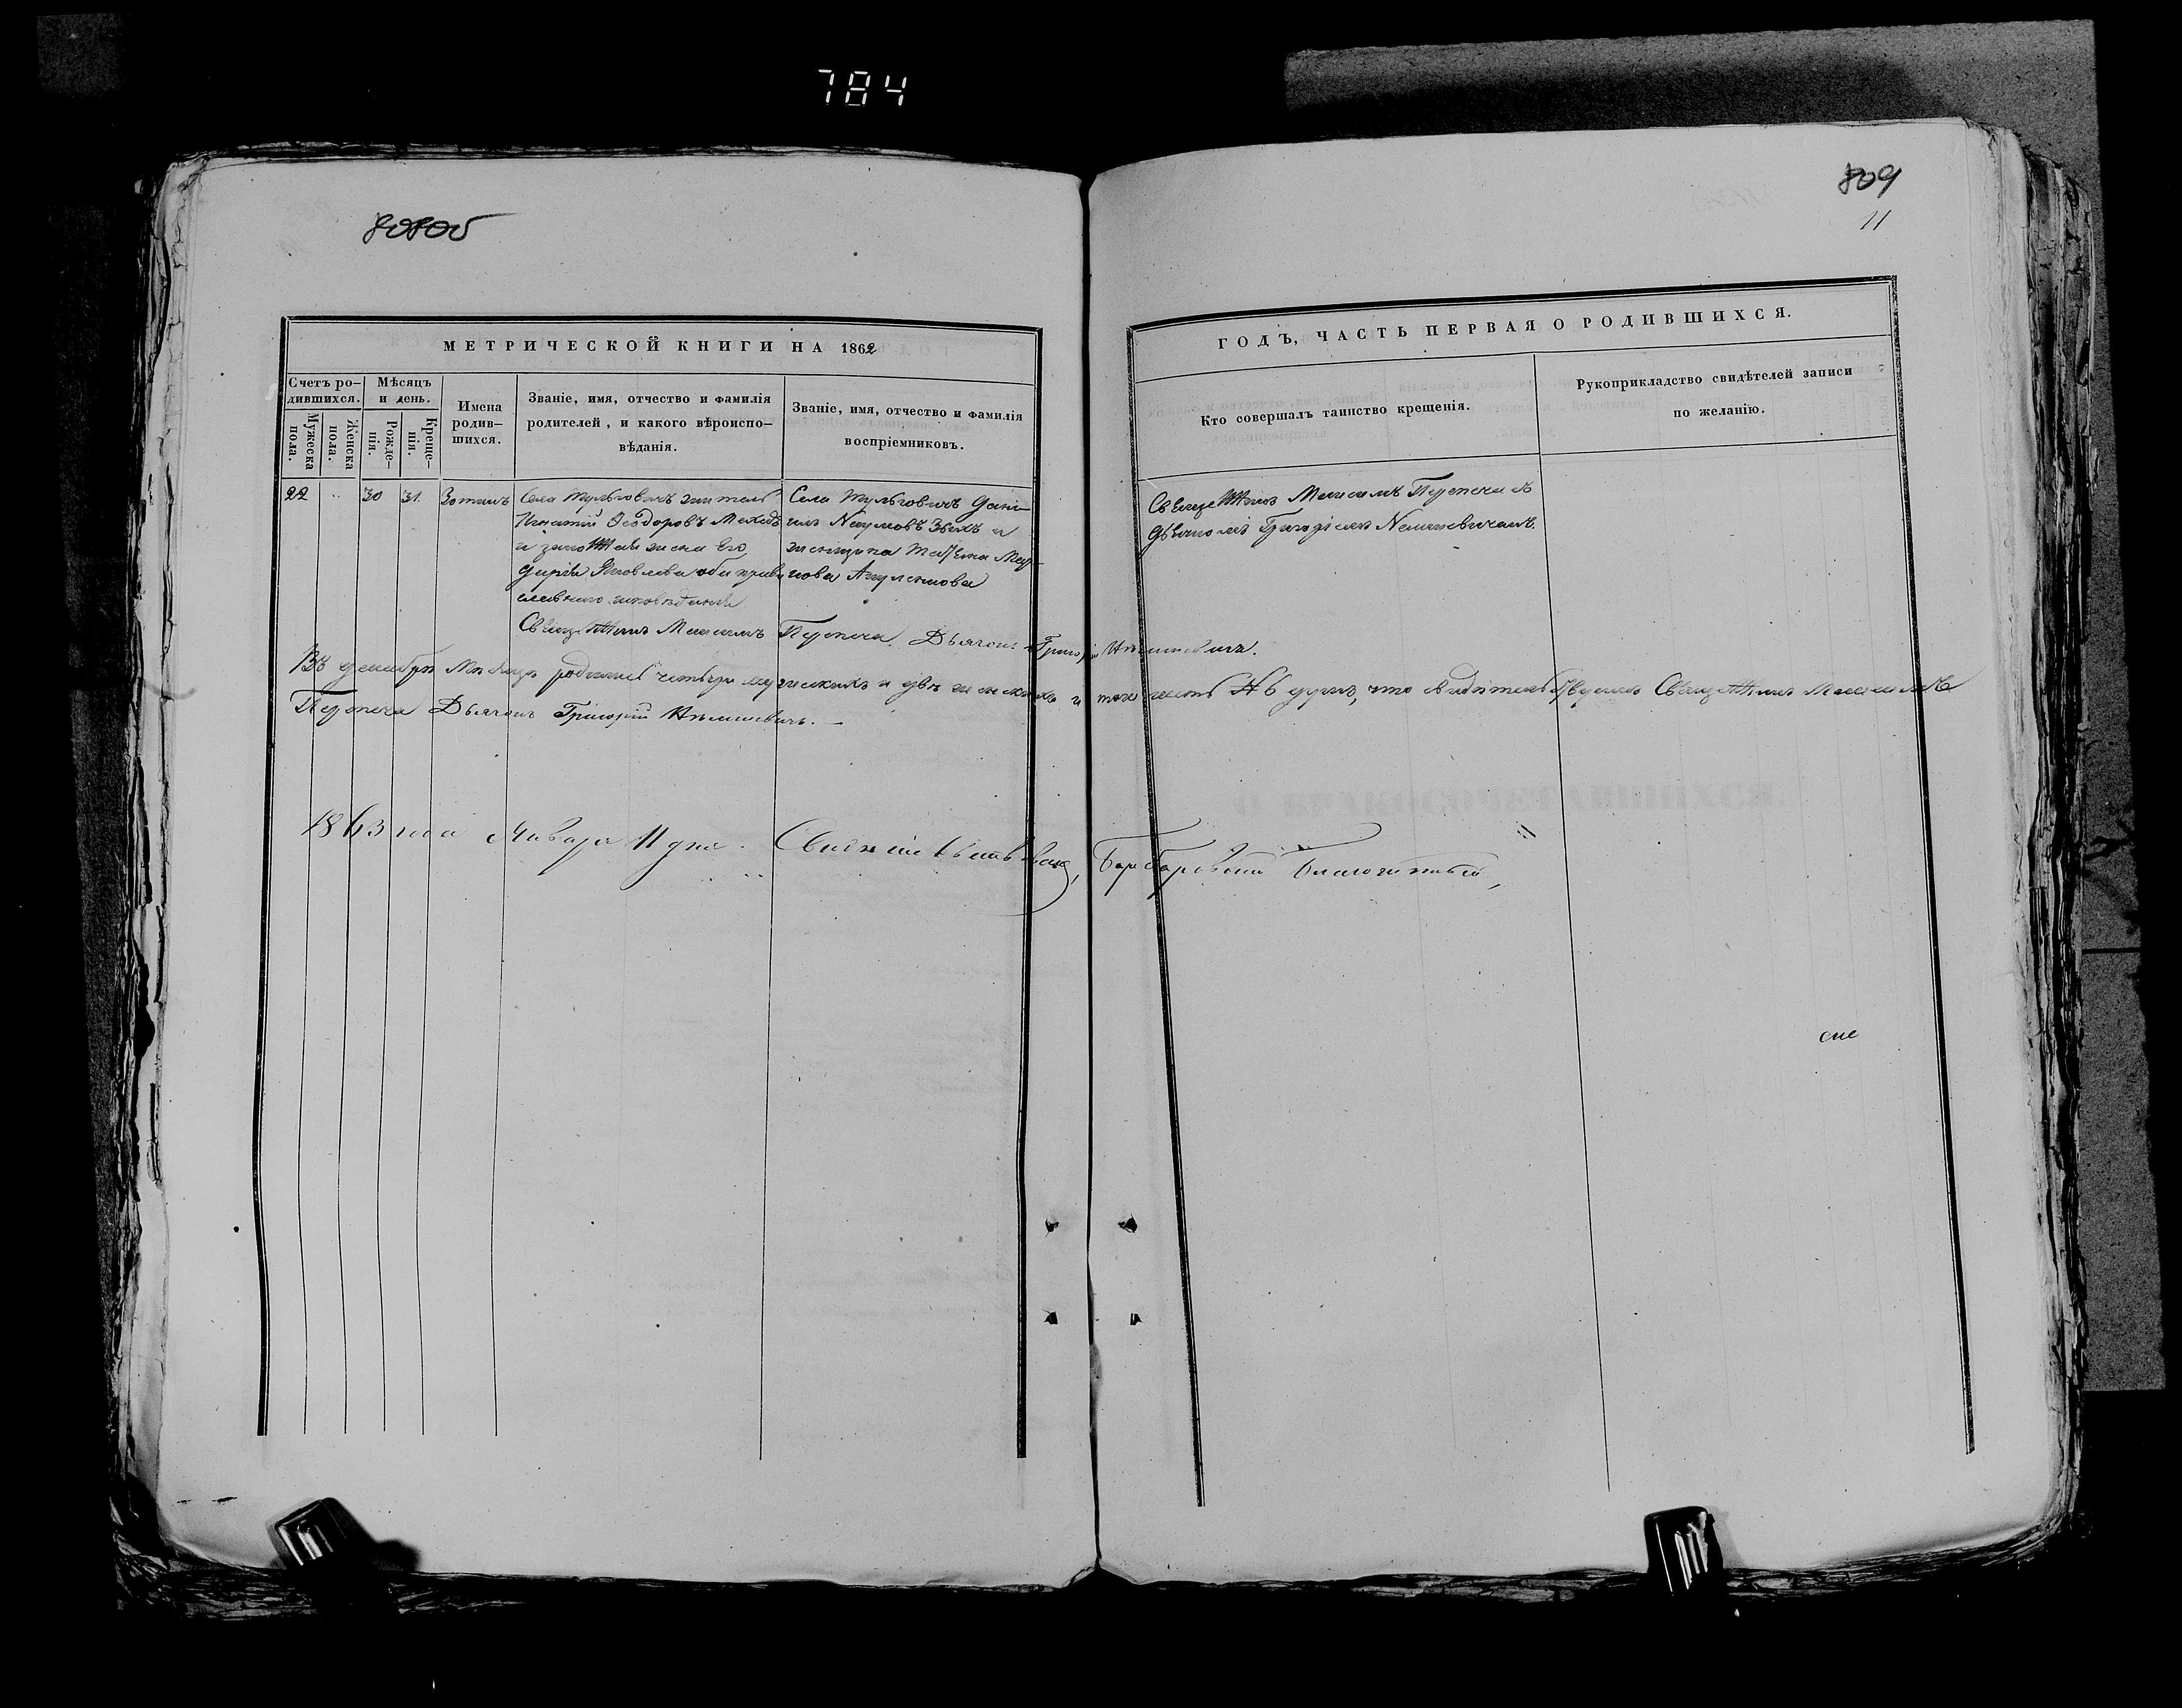 784
808об
809
11
МЕТРИЧЕСКОЙ КНИГИ НА 1862
ГОДЪ, ЧАСТЬ ПЕРВАЯ О РОДИВШИХСЯ.
Счетъ ро-
дившихся.
Мужеска
пола.
Женска
пола.
Мѣсяцъ
и день.
Рожде-
нія.
Креще-
нія.
Имена
родив-
шихся.
Званіе, имя, отчество и фамилія
родителей, и какого вѣроиспо-
вѣданія.
Званіе, имя, отчество и фамилія
воспріемниковъ.
Кто совершалъ таинство крещенія.
Рукоприкладство свидѣтелей записи
по желанію.
22 " 30 31. Зотикъ
Села Тульговичъ житель
Игнатій Ѳеодоровъ
и законная жена его,
Дарія Яковлева оба право
славнаго исповѣданія
Села Тульговичъ Дані-
илъ Наумовъ и
женщина Татьяна
нова
Священникъ Максимъ съ
дьячкомъ Григоріемъ
Священникъ Максимъ Дьячокъ Григорій
Въ декабрѣ мѣсяцѣ родилось четыре мужескихъ и двѣ женскихъ и того шесть № 6 душъ, что свидѣтельствуемъ Священникъ Максимъ
Дьячокъ Григорій
1863 года Января 11 дня. Благочинный,
сие